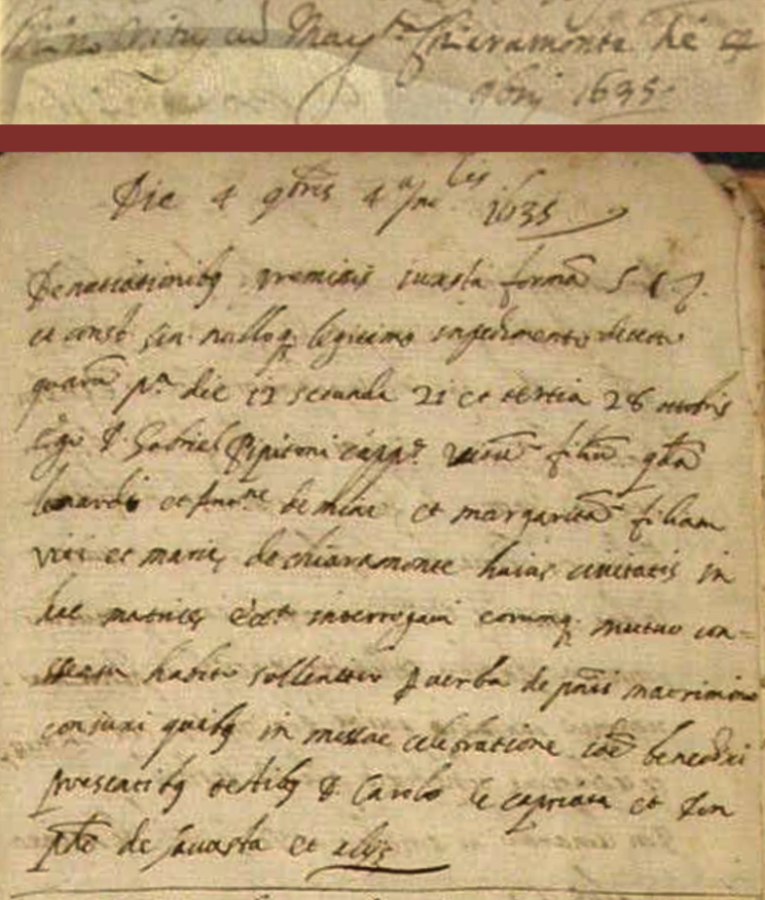 ad Chiaramonte die 4
9bris 1635
Die 4 9bris 4 Ind.lis 1635
Denuntiationibq premissis iuxta formā S C T
et const sin nulloq legitimo impedimento detecto
quarū p.a die 12 secunda 21 et tertia 28 ottobris
Ego D Gabriel Pipitoni capp.s filiū qdā
Leonardi et de mine et margaritā filiam
Viti et marie de chiaramonte huius civitatis in
hac matrice interrogavi eorumq mutuo con-
sensu habito sollenniter p verba de pñti matrimonio
coniunxi quibq in missae celebratione benedixi
presentibq testibq D Carolo et Don
de et aliis